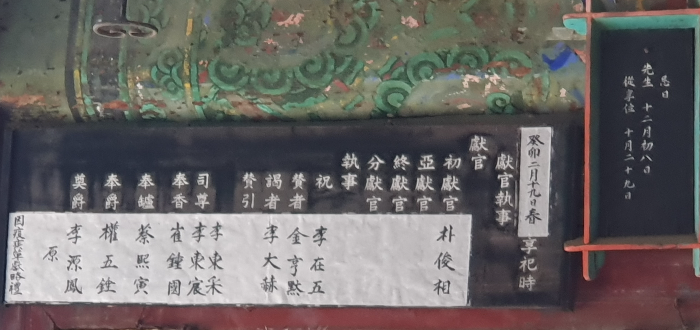 忌日
先生 十二月初八日
從享位 十月二十九日
癸卯二月十九日春 享祀時
獻官執事
獻官
初獻官 朴俊相
亞獻官
終獻官
分獻官
執事
祝 李在五
贊者 金亨默
謁者 李大赫
贊引
司尊 李東采
李東宸
奉香 崔鍾國
奉爐 蔡熙寅
奉爵 權五銓
奠爵 李源鳳
原
因疫病單獻略禮